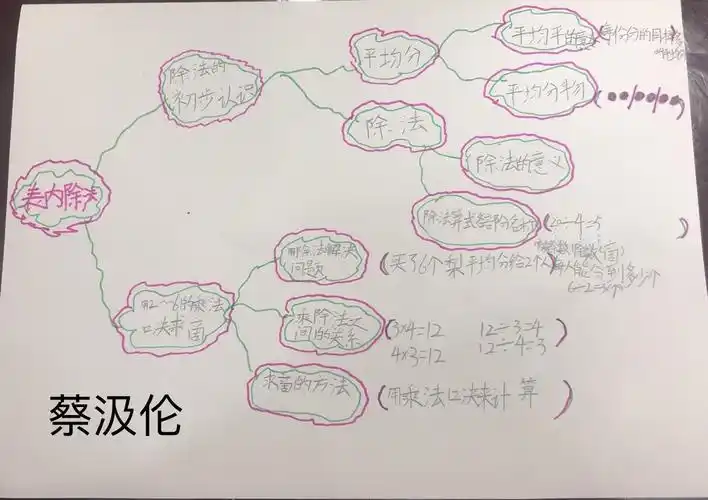 表内除法
除法的
初步认识
平均分
平均平的
每份分的同样多
平均分物
除法
除法的意义
除法算式各部分名称
(20÷4=5
)
用2~6的乘法
口决求商
用除法解决
问题
(买了6个梨平均分给2个人每人能分到多少个
6÷2=3(个)
乘除法之
间的关系
(3×4=12 12÷3=4
4×3=12 12÷4=3)
求商的方法
(用乘法口决来计算)
蔡汲伦